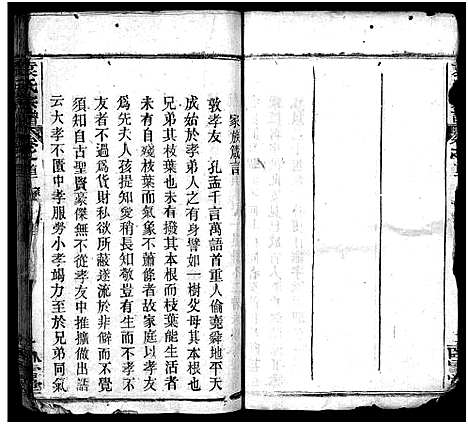 家族箴言
敦孝友　孔孟千言萬語首重人倫堯舜地平天
成始於孝弟人之有身譬如一樹父母其本根也
兄弟其枝葉也未有撥其本根而枝葉能生活者
未有自殘枝葉而氣象不蕭條者故家庭以孝友
爲先夫人孩提知愛稍長知敬豈有生而不孝不
友者自不過爲貨財私欲所蔽遂流於逆僻而不覺
須知自古聖賢豪傑無不從孝友中推擴做出話
云大孝不匱中孝服勞小孝竭力至於兄弟同氣
袁氏宗譜